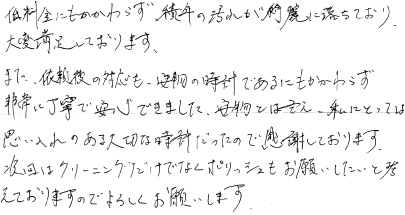 低料金にもかかわらず積年の汚れが綺麗に落ちており、
大変満足しております。
また、依頼後の対応も、安物の時計であるにもかかわらず
非常に丁寧で安心できました。安物とは言え、私にとっては
思い入れのある大切な時計だったので感謝しております。
次回はクリーニングだけでなくポリッシュもお願いしたいと考
えておりますのでよろしくお願いします。